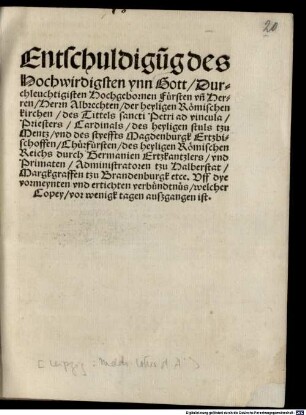 20
Entschuldigūg des
Hochwirdigsten ynn Gott/ Dur-
chleuchtigisten Hochgebornen Fürsten vñ Her-
ren/ Herrn Albrechten/ der heyligen Römischen
kirchen/ des Tittels sancti Petri ad vincula/
Priesters/ Cardinals/ des heyligen stuls tzu
Mentz/ vnd des styeffts Magdenburgk Ertzbi-
schoffen/ Chürfürsten/ des heyligen Römischen
Reichs durch Germanien Ertzkantzlers/ vnd
Primaten/ Administratoren tzu Halberstat/
Margkgraffen tzu Brandenburgk etce. Vff dye
vormeynten vnd ertichten verbündtnüs/ welcher
Copey/ vor wenigk tagen außgangen ist.